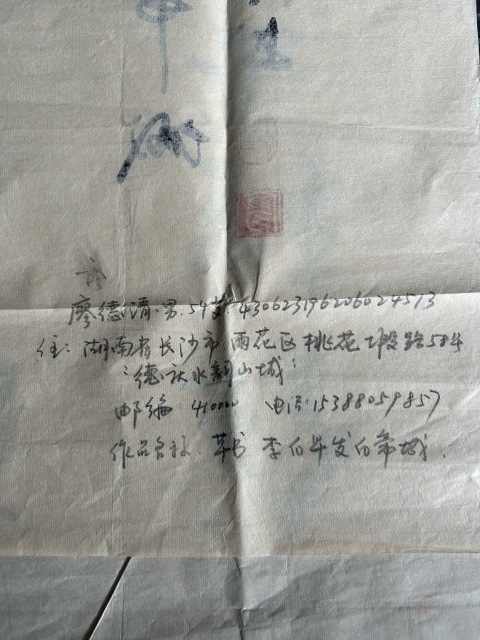 廖德清. 男. 54岁. 430623196206024513
住: 湖南省长沙市雨花区桃花塅路584
"德秋水新山城"
邮编 410000 电话: 15388059857
作品名称. 草书 李白早发白帝城.